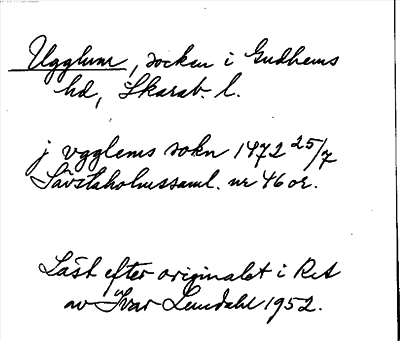 Ugglum, socken i Gudhems
hd, Skarab. l.
j vgglems sokn 1472 25/7
Sävstaholmssaml. nr 46 or.
Läst efter originalet i RA
av Ivar Lundahl 1952.